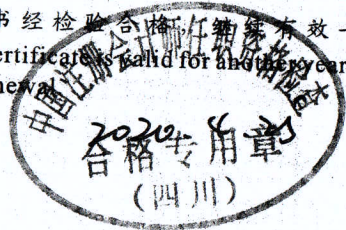 书经检验合格，继续有效一
ertificate is valid for another year
newal
中国注册会计师任职资格检查
2020.4.23
合格专用章
（四川）